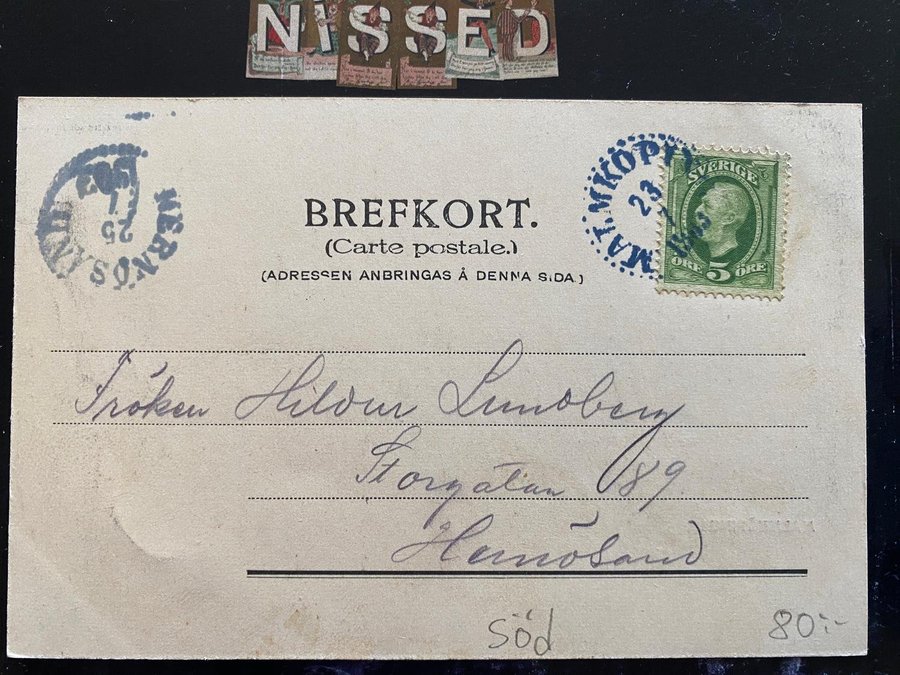 NISSED
BREFKORT.
(Carte postale.)
(ADRESSEN ANBRINGAS Å DENNA SIDA.)
HERNÖSAND
25
11
1903
MALMKÖPING
23
1903
SVERIGE
ÖRE 5 ÖRE
Fröken Hildur Lundberg
Storgatan 89
Hernösand
söd
80:-